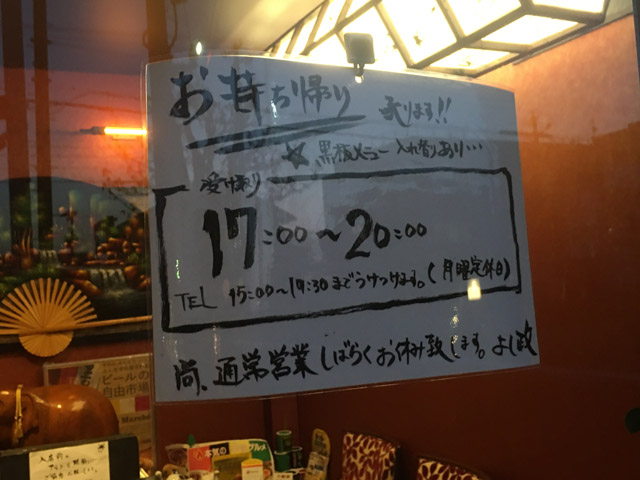 お持ち帰り 承ります!!
☆黒板メニュー入れ替りあり…
受け取り
17:00〜20:00
TEL 15:00〜19:30までうけつけます。(月曜定休日)
尚、通常営業しばらくお休み致します。よし政
ビールの
自由市場